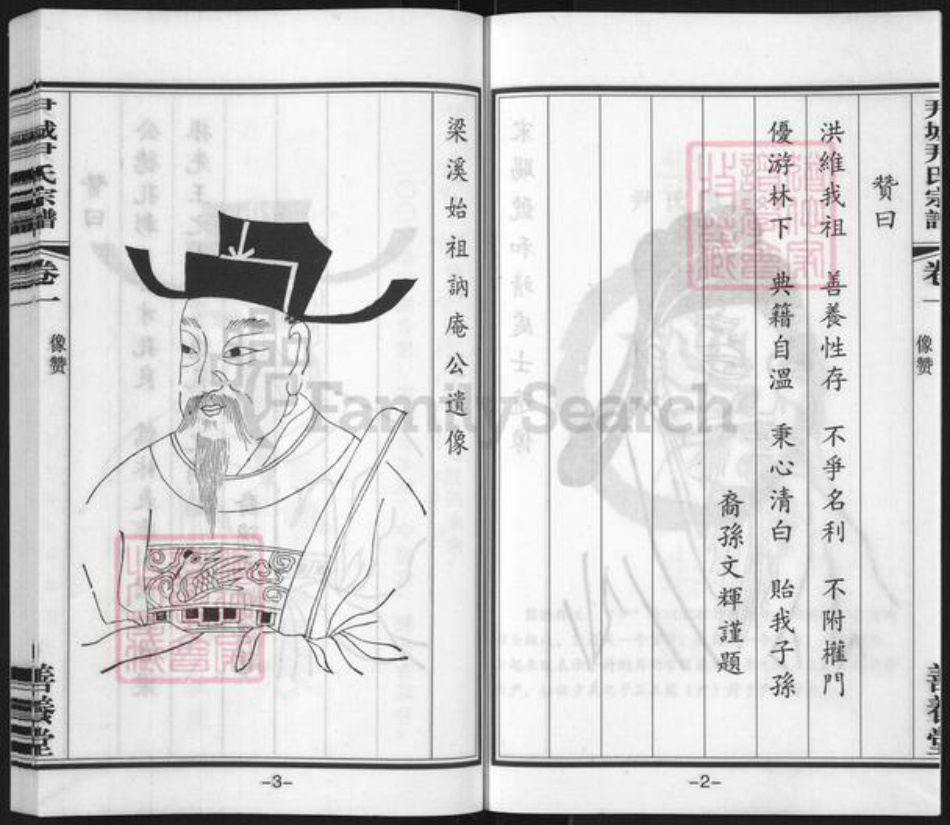 尹城尹氏宗譜
卷一
像赞
善養堂
赞曰
洪維我祖　善養性存　不爭名利　不附權門
優游林下　典籍自溫　秉心清白　貽我子孫
裔孫文輝謹題
-2-
梁溪始祖訥庵公遺像
尹城尹氏宗譜
卷一
像赞
善養堂
-3-
FamilySearch